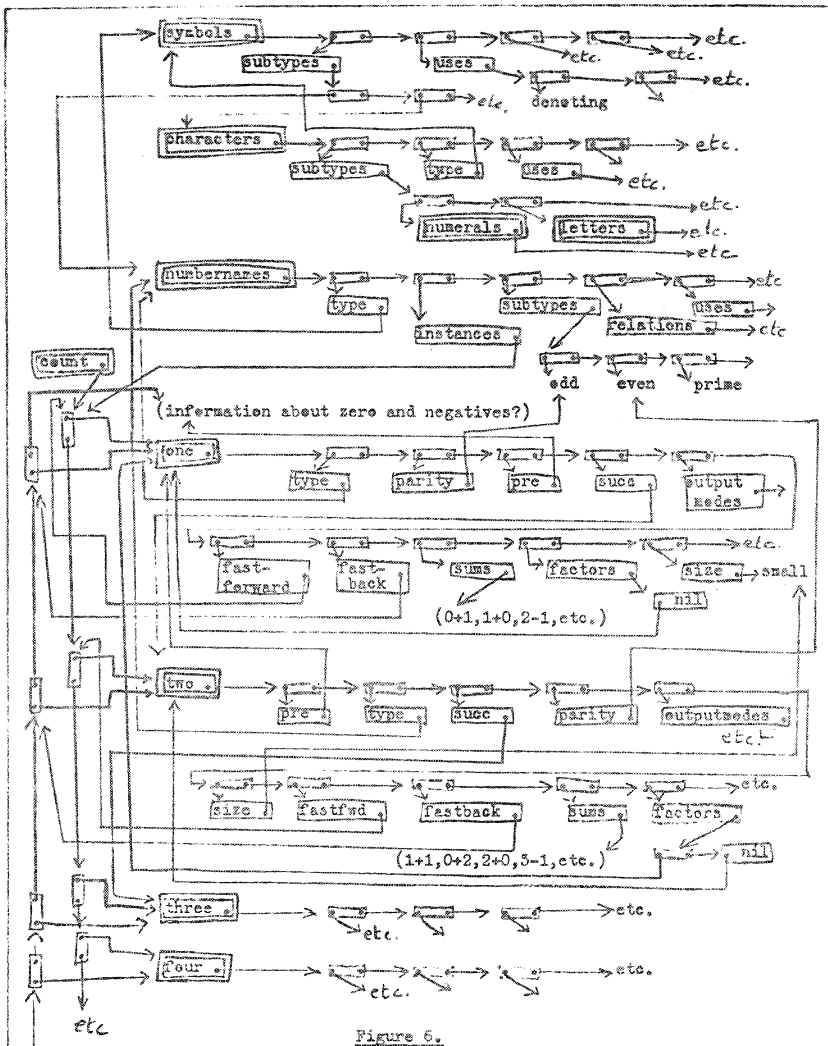 symbols
etc.
etc.
etc.
subtypes
uses
etc.
etc.
denoting
characters
etc.
subtypes
type
uses
etc.
etc.
numerals
letters
etc.
etc
numbernames
etc
type
subtypes
uses
instances
relations
etc
count
odd even prime
(information about zero and negatives?)
one
type
parity
pre
succ
output
modes
etc.
fast-
forward
fast-
back
sums
factors
size
small
(0+1,1+0,2-1,etc.)
nil
two
pre
type
succ
parity
outputmodes
etc.
etc.
size
fastfwd
fastback
sums
factors
(1+1,0+2,2+0,3-1,etc.)
nil
three
etc.
etc.
four
etc.
etc.
etc
Figure 6.